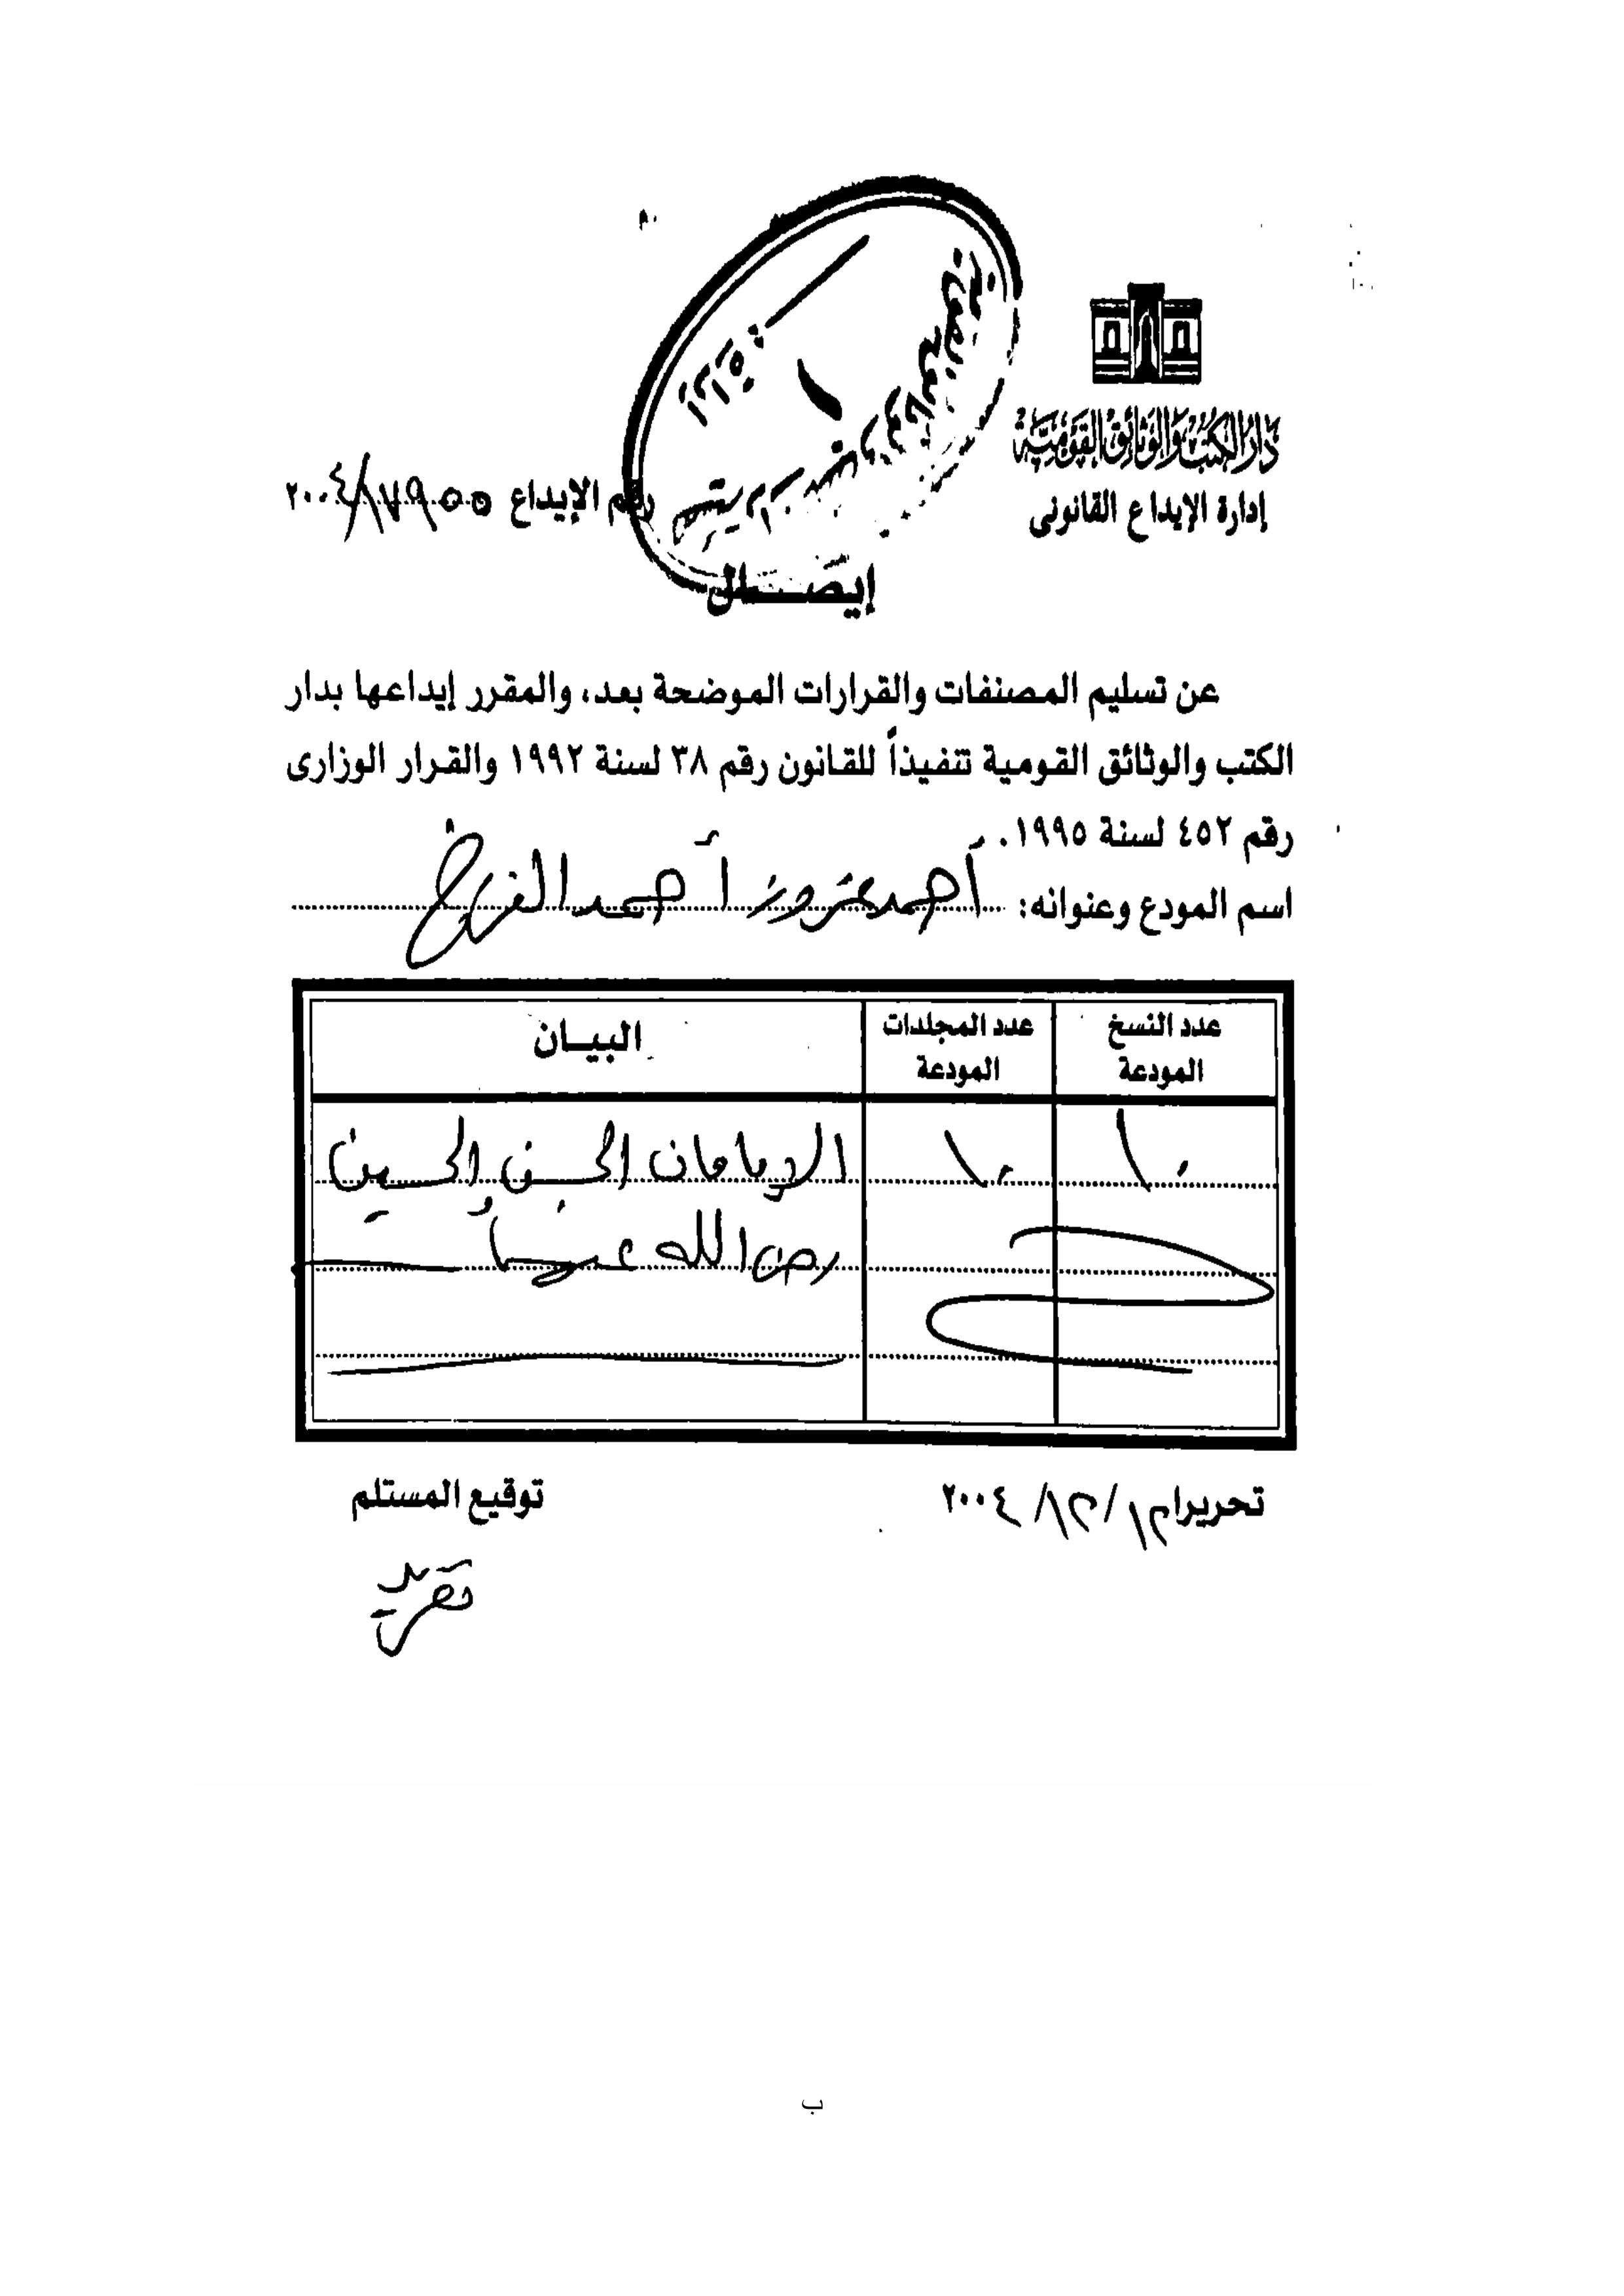 دار الكتب والوثائق القومية
إدارة الإيداع القانونى
رقم الإيداع ١٧٩٥٥/٢٠٠٤
إيصال
عن تسليم المصنفات والقرارات الموضحة بعد، والمقرر إيداعها بدار
الكتب والوثائق القومية تنفيذاً للقانون رقم ٣٨ لسنة ١٩٩٢ والقرار الوزارى
رقم ٤٥٢ لسنة ١٩٩٥.
اسم المودع وعنوانه: أحمد عزوز أحمد الفرخ
عدد النسخ المودعة
عدد المجلدات المودعة
البيان
١٠
١٠
الإمامان الحسن والحسين
رضى الله عنهما
تحريرا ٢٠٠٤
توقيع المستلم
ب